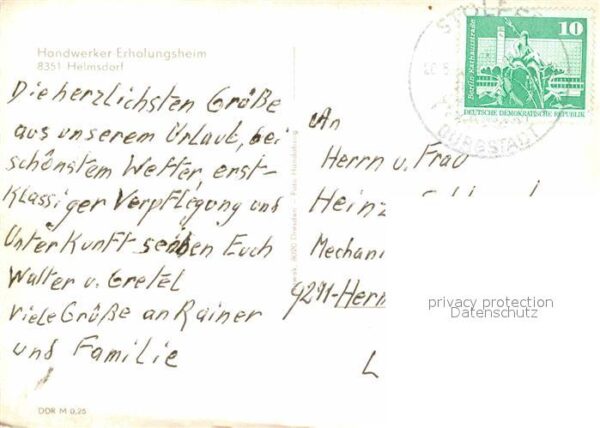 Handwerker-Erholungsheim
8351 Helmsdorf
Die herzlichsten Grüße
aus unserem Urlaub, bei
schönstem Wetter, erst-
Klassiger Verpflegung und
Unterkunft senden Euch
Walter u. Gretel
viele Grüße an Rainer
und Familie
DDR M 0,25
STOLPE
BURGSTADT
Berlin · Rathausstraße
10
DEUTSCHE DEMOKRATISCHE REPUBLIK
An
Herrn u. Frau
Heinz
Mechani
9291-Herm
L
privacy protection
Datenschutz